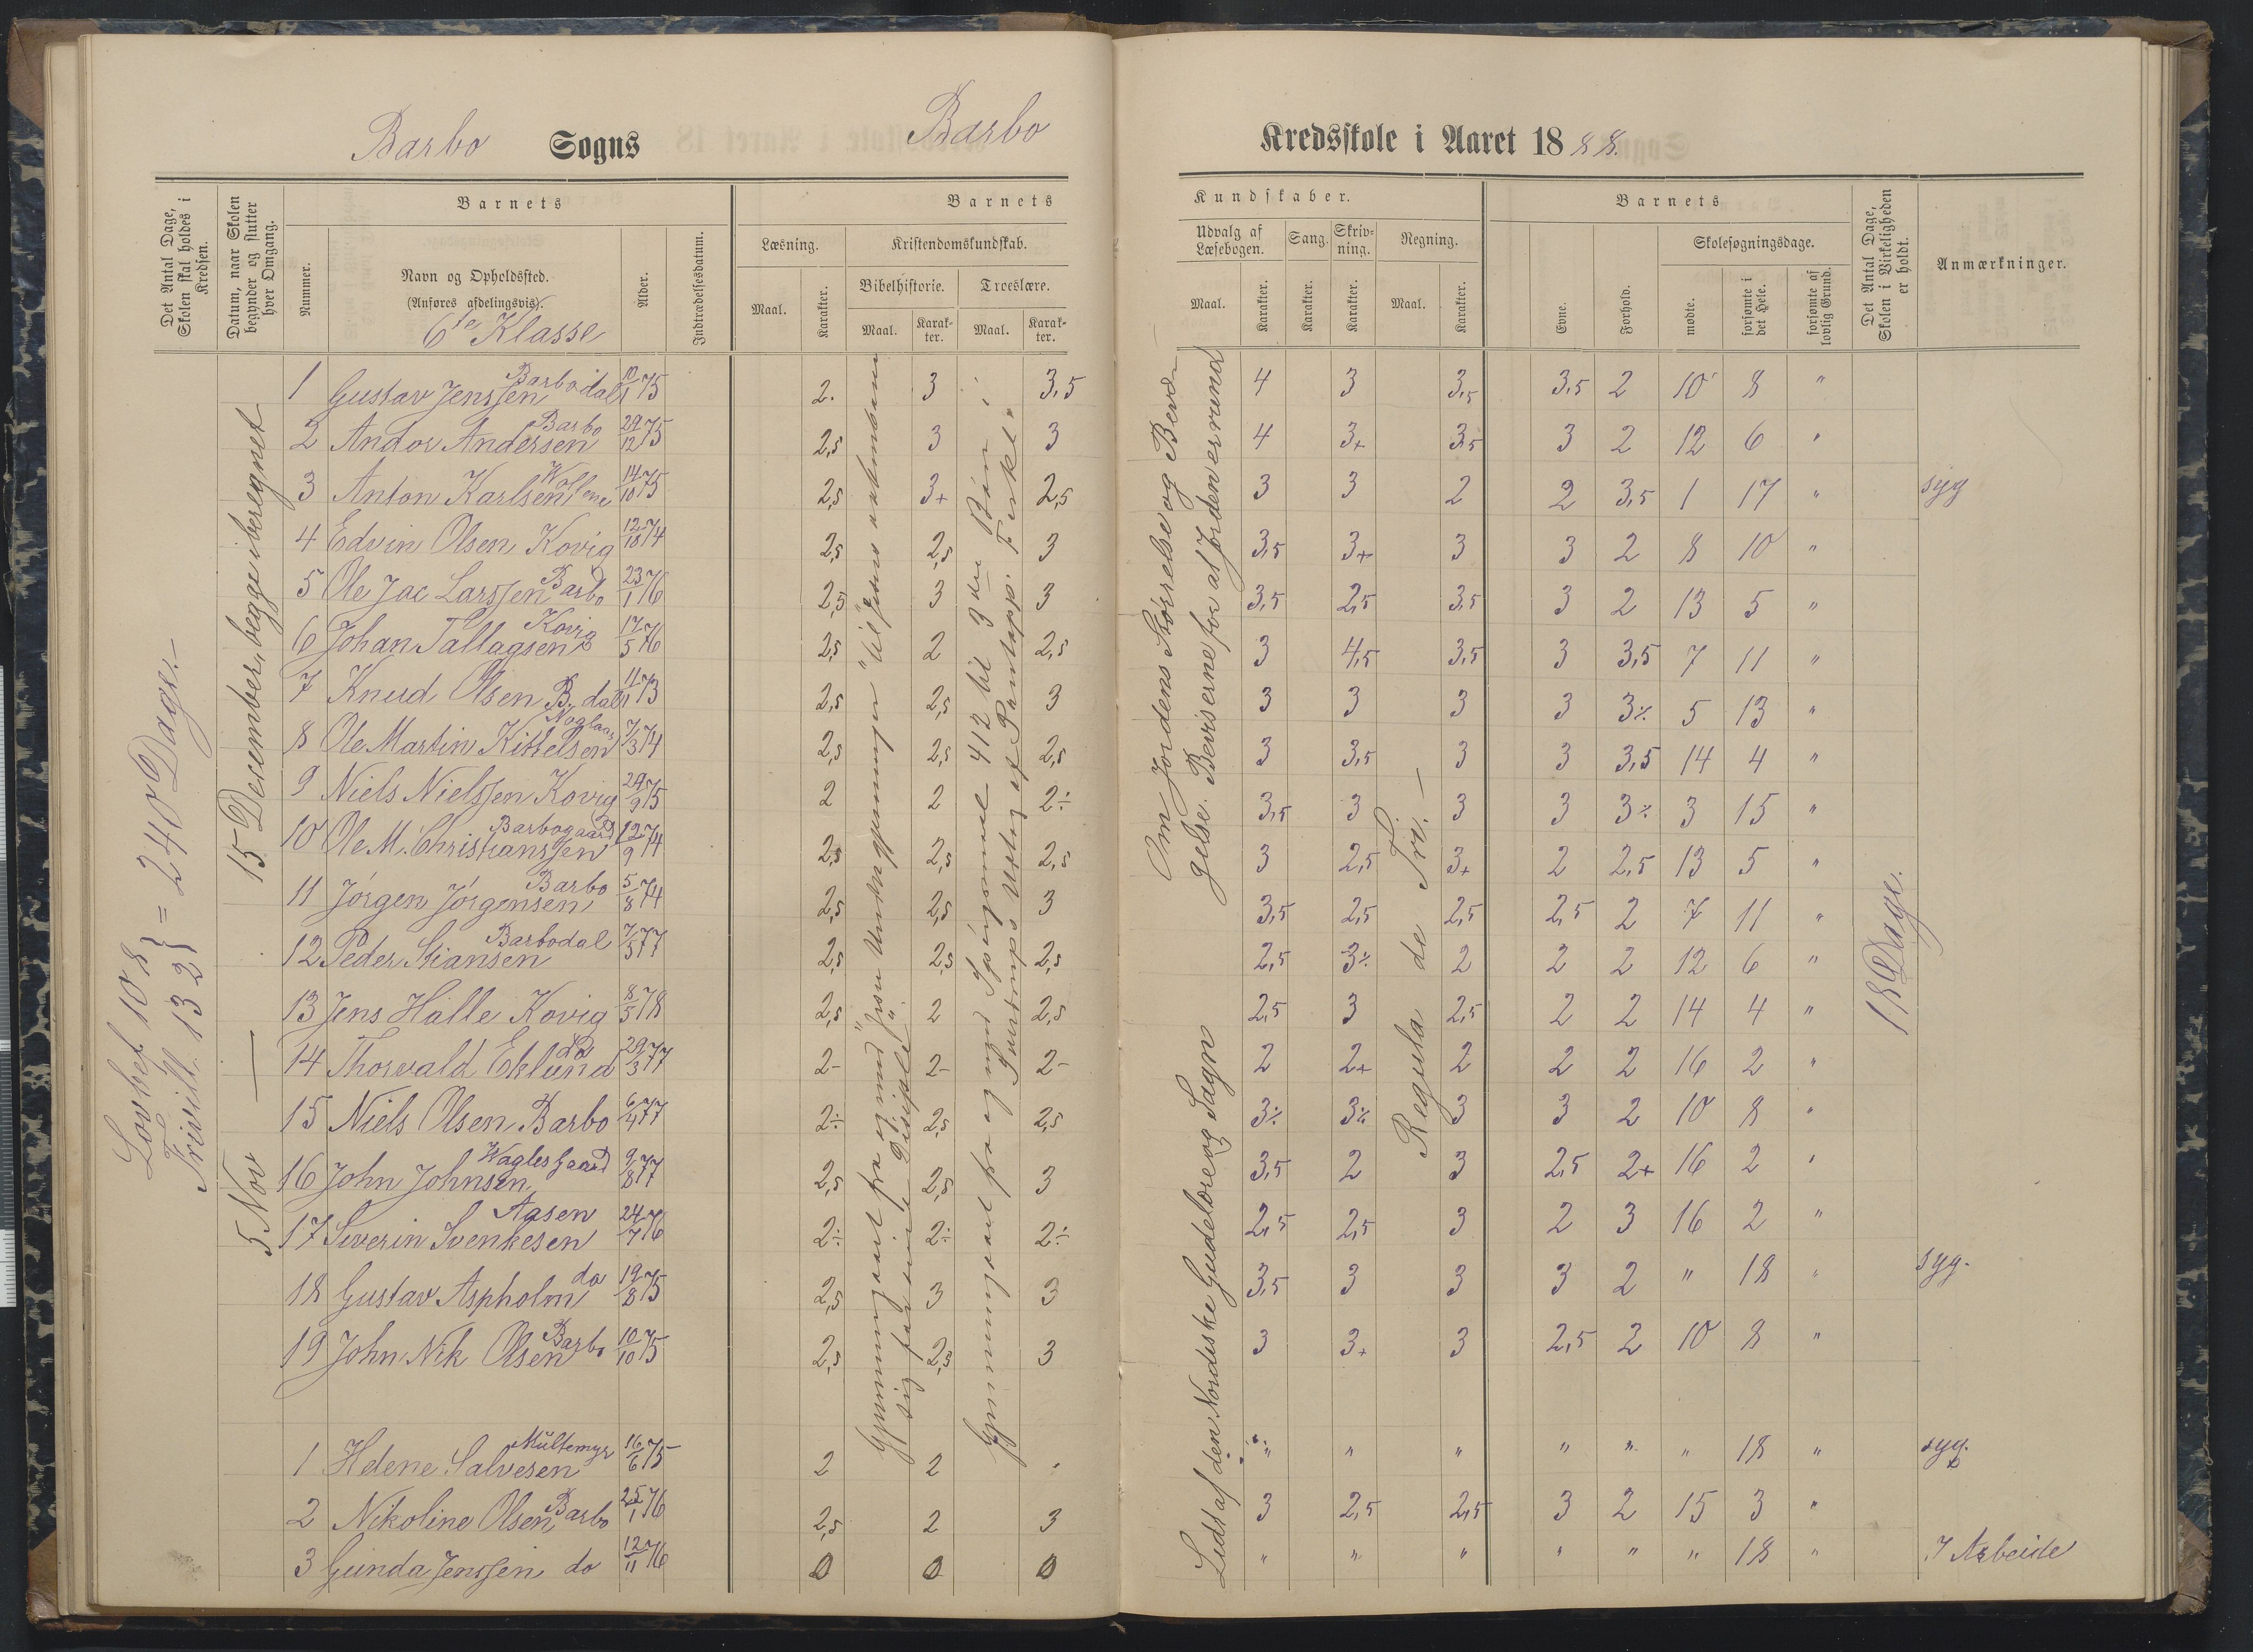 Barbo Sogns Barbo Kredsskole i Aaret 1888.
Det Antal Dage, Skolen skal holdes i Kredsen.
Datum, naar Skolen begynder og slutter hver Omgang.
Barnets
Nummer.
Navn og Opholdssted.
(Anføres afdelingsvis).
6te Klasse
Alder.
Indtrædelsesdatum.
Barnets
Læsning.
Maal.
Karakter.
Kristendomskundskab.
Bibelhistorie.
Maal.
Karakter.
Troeslære.
Maal.
Karakter.
Kundskaber.
Udvalg af Læsebogen.
Maal.
Karakter.
Sang.
Karakter.
Skrivning.
Karakter.
Regning.
Maal.
Karakter.
Barnets
Evne.
Forhold.
Skolesøgningsdage.
mødte.
forsømte i det Hele.
forsømte af lovlig Grund.
Det Antal Dage, Skolen i Virkeligheden er holdt.
Anmærkninger.
Lovbef. 108
Frivill. 132 } = 240 Dage.-
5 Nov — 15 December, begge iberegnet
1 Gustav Jenssen Barbodal 10/1 75 2. 3 3,5 4 3 3,5 3,5 2 10 8 "
2 Andor Andersen Barbo 29/12 75 2,5 3 3 4 3+ 3,5 3 2 12 6 "
3 Anton Karlsen Wollene 14/10 75 2,5 3+ 2,5 3 3 2 2 3,5 1 17 " syg
4 Edvin Olsen Kovig 12/10 74 2,5 2,5 3 3,5 3+ 3 3 2 8 10 "
5 Ole Jac Larssen Barbo 23/1 76 2,5 3 3 3,5 2,5 3,5 3 2 13 5 "
6 Johan Tallagsen Kovig 17/5 76 2,5 2 2,5 3 4,5 3,5 3 3,5 7 11 "
7 Knud Olsen B. dal 11/1 73 2,5 2,5 3 3 3 3 3 3÷ 5 13 "
8 Ole Martin Kittelsen 7/3 74 2,5 2,5 2,5 3 3,5 3 3 3,5 14 4 "
9 Niels Nielssen Kovig 29/9 75 2 2 2÷ 3,5 3 3 3 3÷ 3 15 "
10 Ole M. Christianssen Barbogaard 12/9 74 2,5 2,5 2,5 3 2,5 3+ 2 2,5 13 5 "
11 Jörgen Jörgensen Barbo 5/8 74 2,5 2,5 3 3,5 2,5 2,5 2,5 2 7 11 "
12 Peder Stiansen Barbodal 7/5 77 2,5 2,5 2,5 2,5 3÷ 2 2 2 12 6 "
13 Jens Halle Kovig 8/5 78 2,5 2 2,5 2,5 3 2,5 2 2 14 4 "
14 Thorvald Eklund do 29/3 77 2- 2- 2- 2 2+ 2 2 2 16 2 "
15 Niels Olsen Barbo 6/4 77 2÷ 2,5 2,5 3÷ 3÷ 3 3 2 10 8 "
16 John Johnsen 9/8 77 2,5 2,5 3 3,5 2 3 2,5 2+ 16 2 "
17 Siverin Svenkesen Aasen 24/7 76 2÷ 2÷ 2÷ 2,5 2,5 3 2 3 16 2 "
18 Gustav Aspholm do 19/8 75 2,5 3 3 3,5 3 3 3 2 " 18 " syg.
19 John Nik Olsen Barbo 10/10 75 2,5 2,5 3 3 3+ 3 2,5 2 10 8 "
1 Helene Salvesen Multemyr 16/6 75 2 2 " " " " " " 18 " syg.
2 Nikoline Olsen Barbo 25/1 76 2,5 2 3 3 2,5 2,5 3 2 15 3 "
3 Gunda Jenssen do 12/11 76 0 0 0 " " " " " " 18 " I Arbeide
Gjennemgaaet fra og med "Jesu Undergjerninger" til "Jesus aabenbarer
sig for sine Disiple".
Gjennemgaaet fra og med Spörgsmaal 412 til 3die Bön i
Sverdrups Udtog af Pontopp. Forkl.
Om Jordens Størrelse og Bevægelse. Beviserne for at Jorden er rund
Lidt af den Nordiske Gudelære og Sagn
Regula de Tri.—
18 Dage.